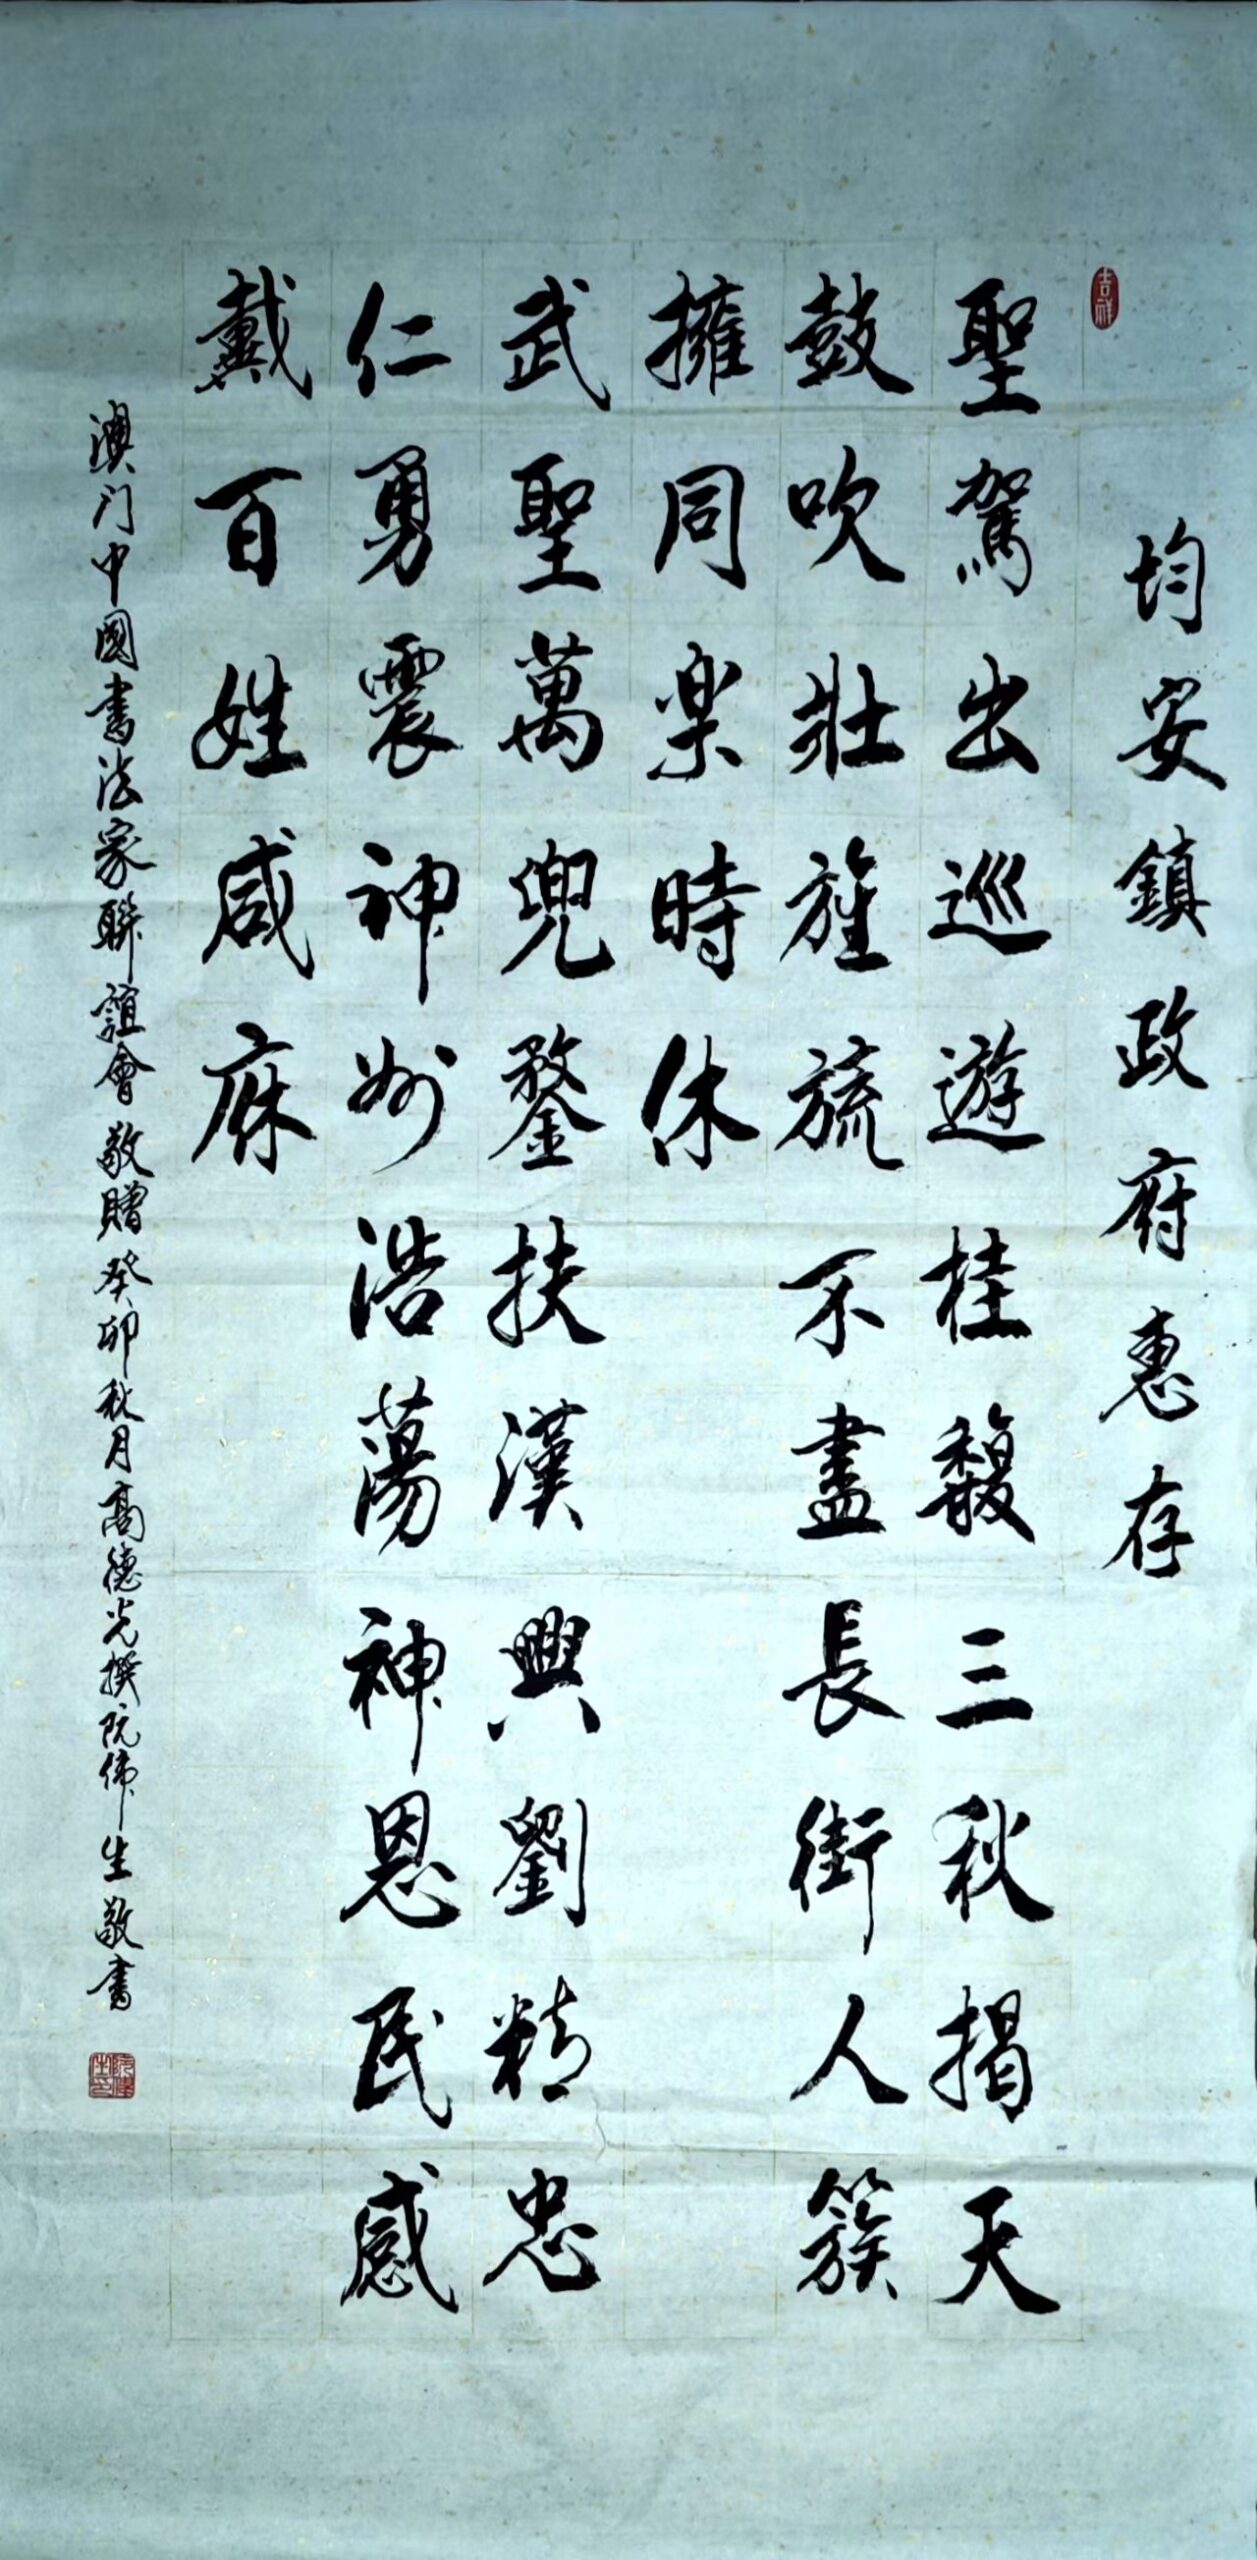 吉祥
均安鎮政府惠存
聖駕出巡遊桂馥三秋揭天
鼓吹壯旌旒不盡長街人簇
擁同楽時休
武聖萬兜鍪扶漢興劉精忠
仁勇震神州浩蕩神恩民感
戴百姓咸庥
澳门中國書法家聯誼會敬贈癸卯秋月高德光撰阮偉生敬書